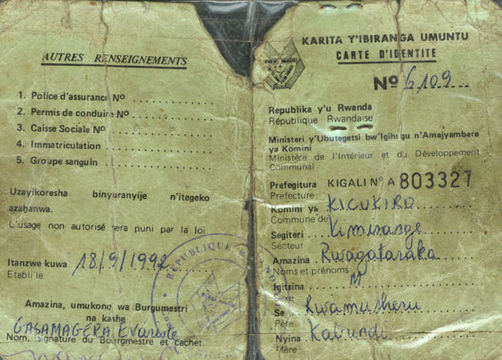 AUTRES RENSEIGNEMENTS
1. Police d'assurance Nº
2. Permis de conduire Nº
3. Caisse Sociale Nº
4. Immatriculation
5. Groupe sanguin
Uzayikoresha binyuranyije n'itegeko
azahanwa.
L'usage non autorisé sera puni par la loi
Itanzwe kuwa 18/9/1992
Etabli le
Amazina, umukono wa Burgumestri
na kashe
GASAMAGERA Evariste
Nom, signature du Bourgmestre et cachet
REPUBLIQUE
KARITA Y'IBIRANGA UMUNTU
CARTE D'IDENTITE
Nº 6109
Republika y'u Rwanda
République Rwandaise
Ministeri y'Ubutegetsi bw'Igihugu n'Amajyambere
ya Komini
Ministère de l'Intérieur et du Développement
Communal
Prefegitura KIGALI Nº A 803327
Préfecture
Komini ya KICUKIRO
Commune de
Segiteri Kimisange
Secteur
Amazina Rwagataraka
Noms et prénoms
Igitsina M
Sexe
Se Rwamusheru
Père
Nyina Kabundi
Mère